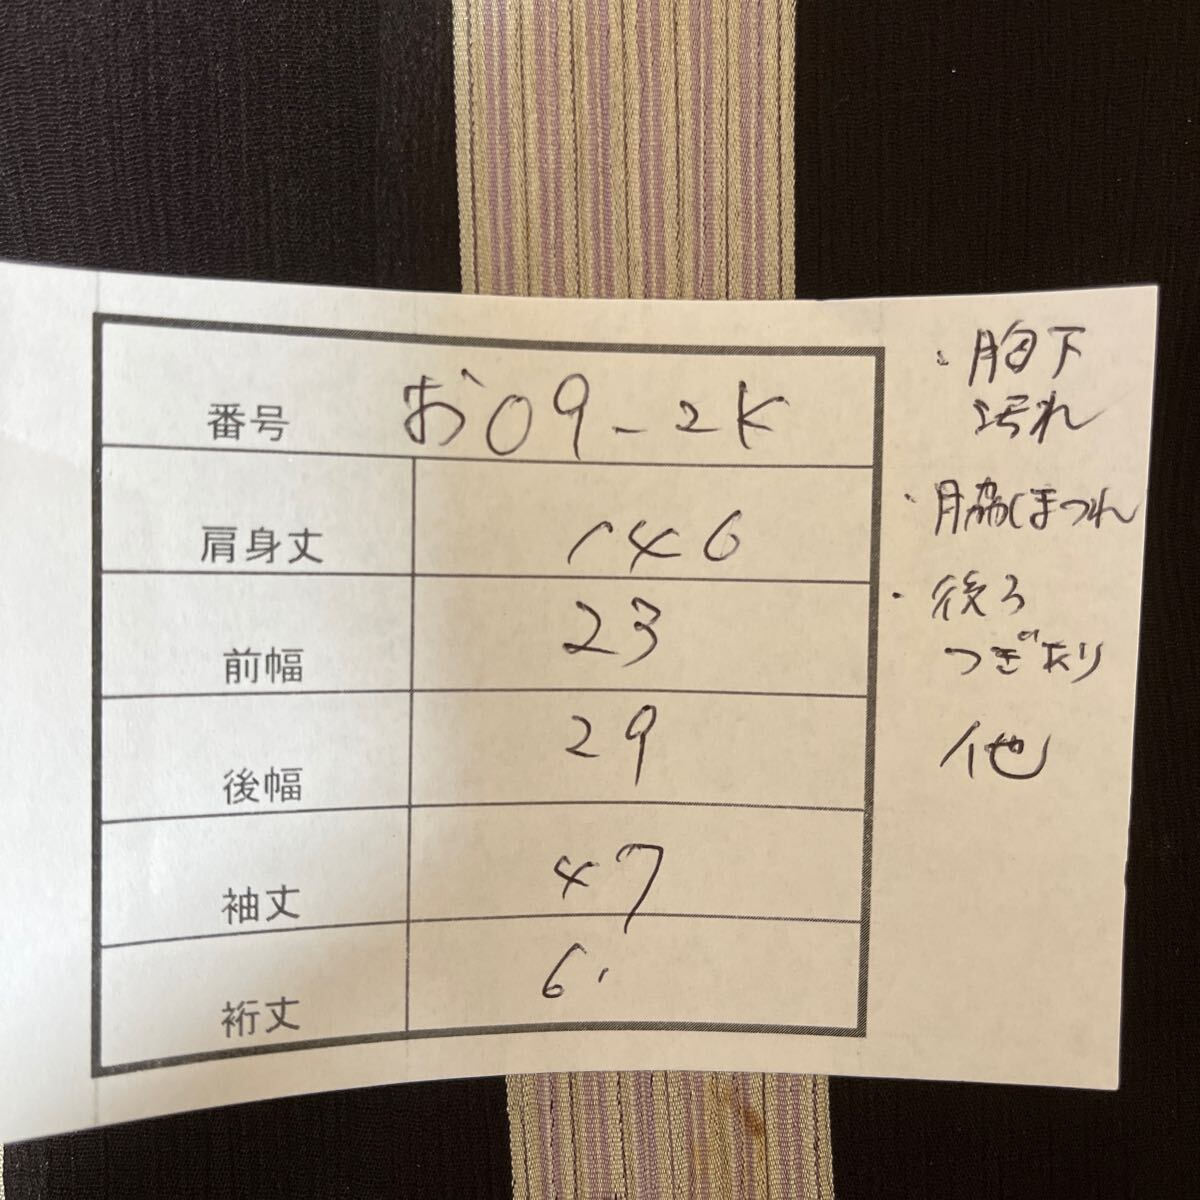 番号 お09-2K
肩身丈 146
前幅 23
後幅 29
袖丈 47
裄丈 61
・胸下
汚れ
・脇しまつれ
・後ろ
つぎあり
他